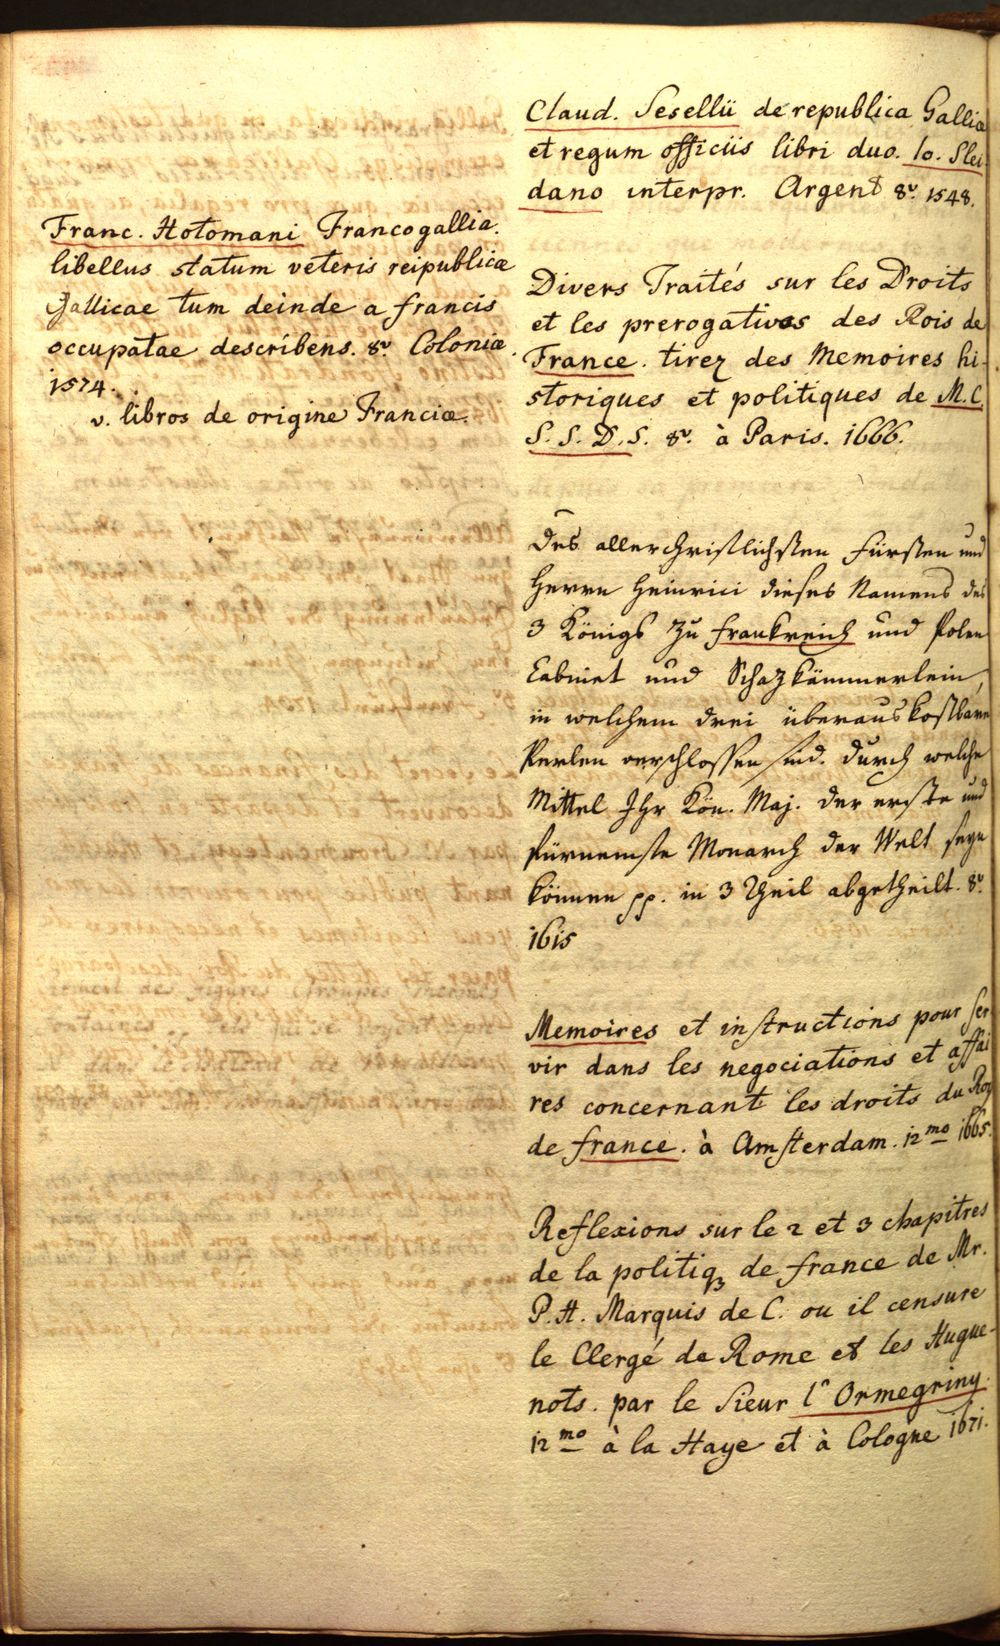 Franc. Hotomani Francogallia.
libellus statum veteris reipublicæ
Gallicae tum deinde a francis
occupatae describens. 8º Coloniæ.
1574.
v. libros de origine Franciæ.
Claud. Sesellii de republica Galliæ
et regum officiis libri duo. Io. Slei
dano interpr. Argent 8º. 1548.
Divers Traités sur les Droits
et les prerogatives des Rois de
France. tirez des Memoires hi-
storiques et politiques de M. C.
S. S. D. S. 8º. à Paris. 1666.
Des allerchristlichsten Fürsten und
Herrn Heinrici dieses Namens des
3 Königs zu Frankreich und Polen
Cabinet und Schazkämmerlein,
in welchem drei überaus kostbare
Perlen verschlossen sind. durch welche
Mittel Ihr Kön. Maj. der erste und
fürnemste Monarch der Welt seyn
können pp. in 3 Theil abgetheilt. 8º.
1615
Memoires et instructions pour ser
vir dans les negociations et affai
res concernant les droits du Roy
de france. à Amsterdam. 12mo 1665.
Reflexions sur le 2 et 3 chapitres
de la politiq3 de france de Mr.
P. H. Marquis de C. ou il censure
le Clergé de Rome et les Hugue-
nots. par le Sieur l'Ormegriny.
12mo à la Haye et à Cologne 1671.